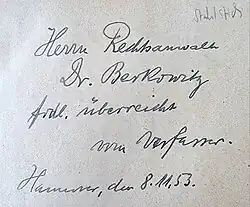 Herrn Rechtsanwalt
Dr. Berkowitz
frdl. überreicht
vom Verfasser.
Hannover, den 8.11.53.